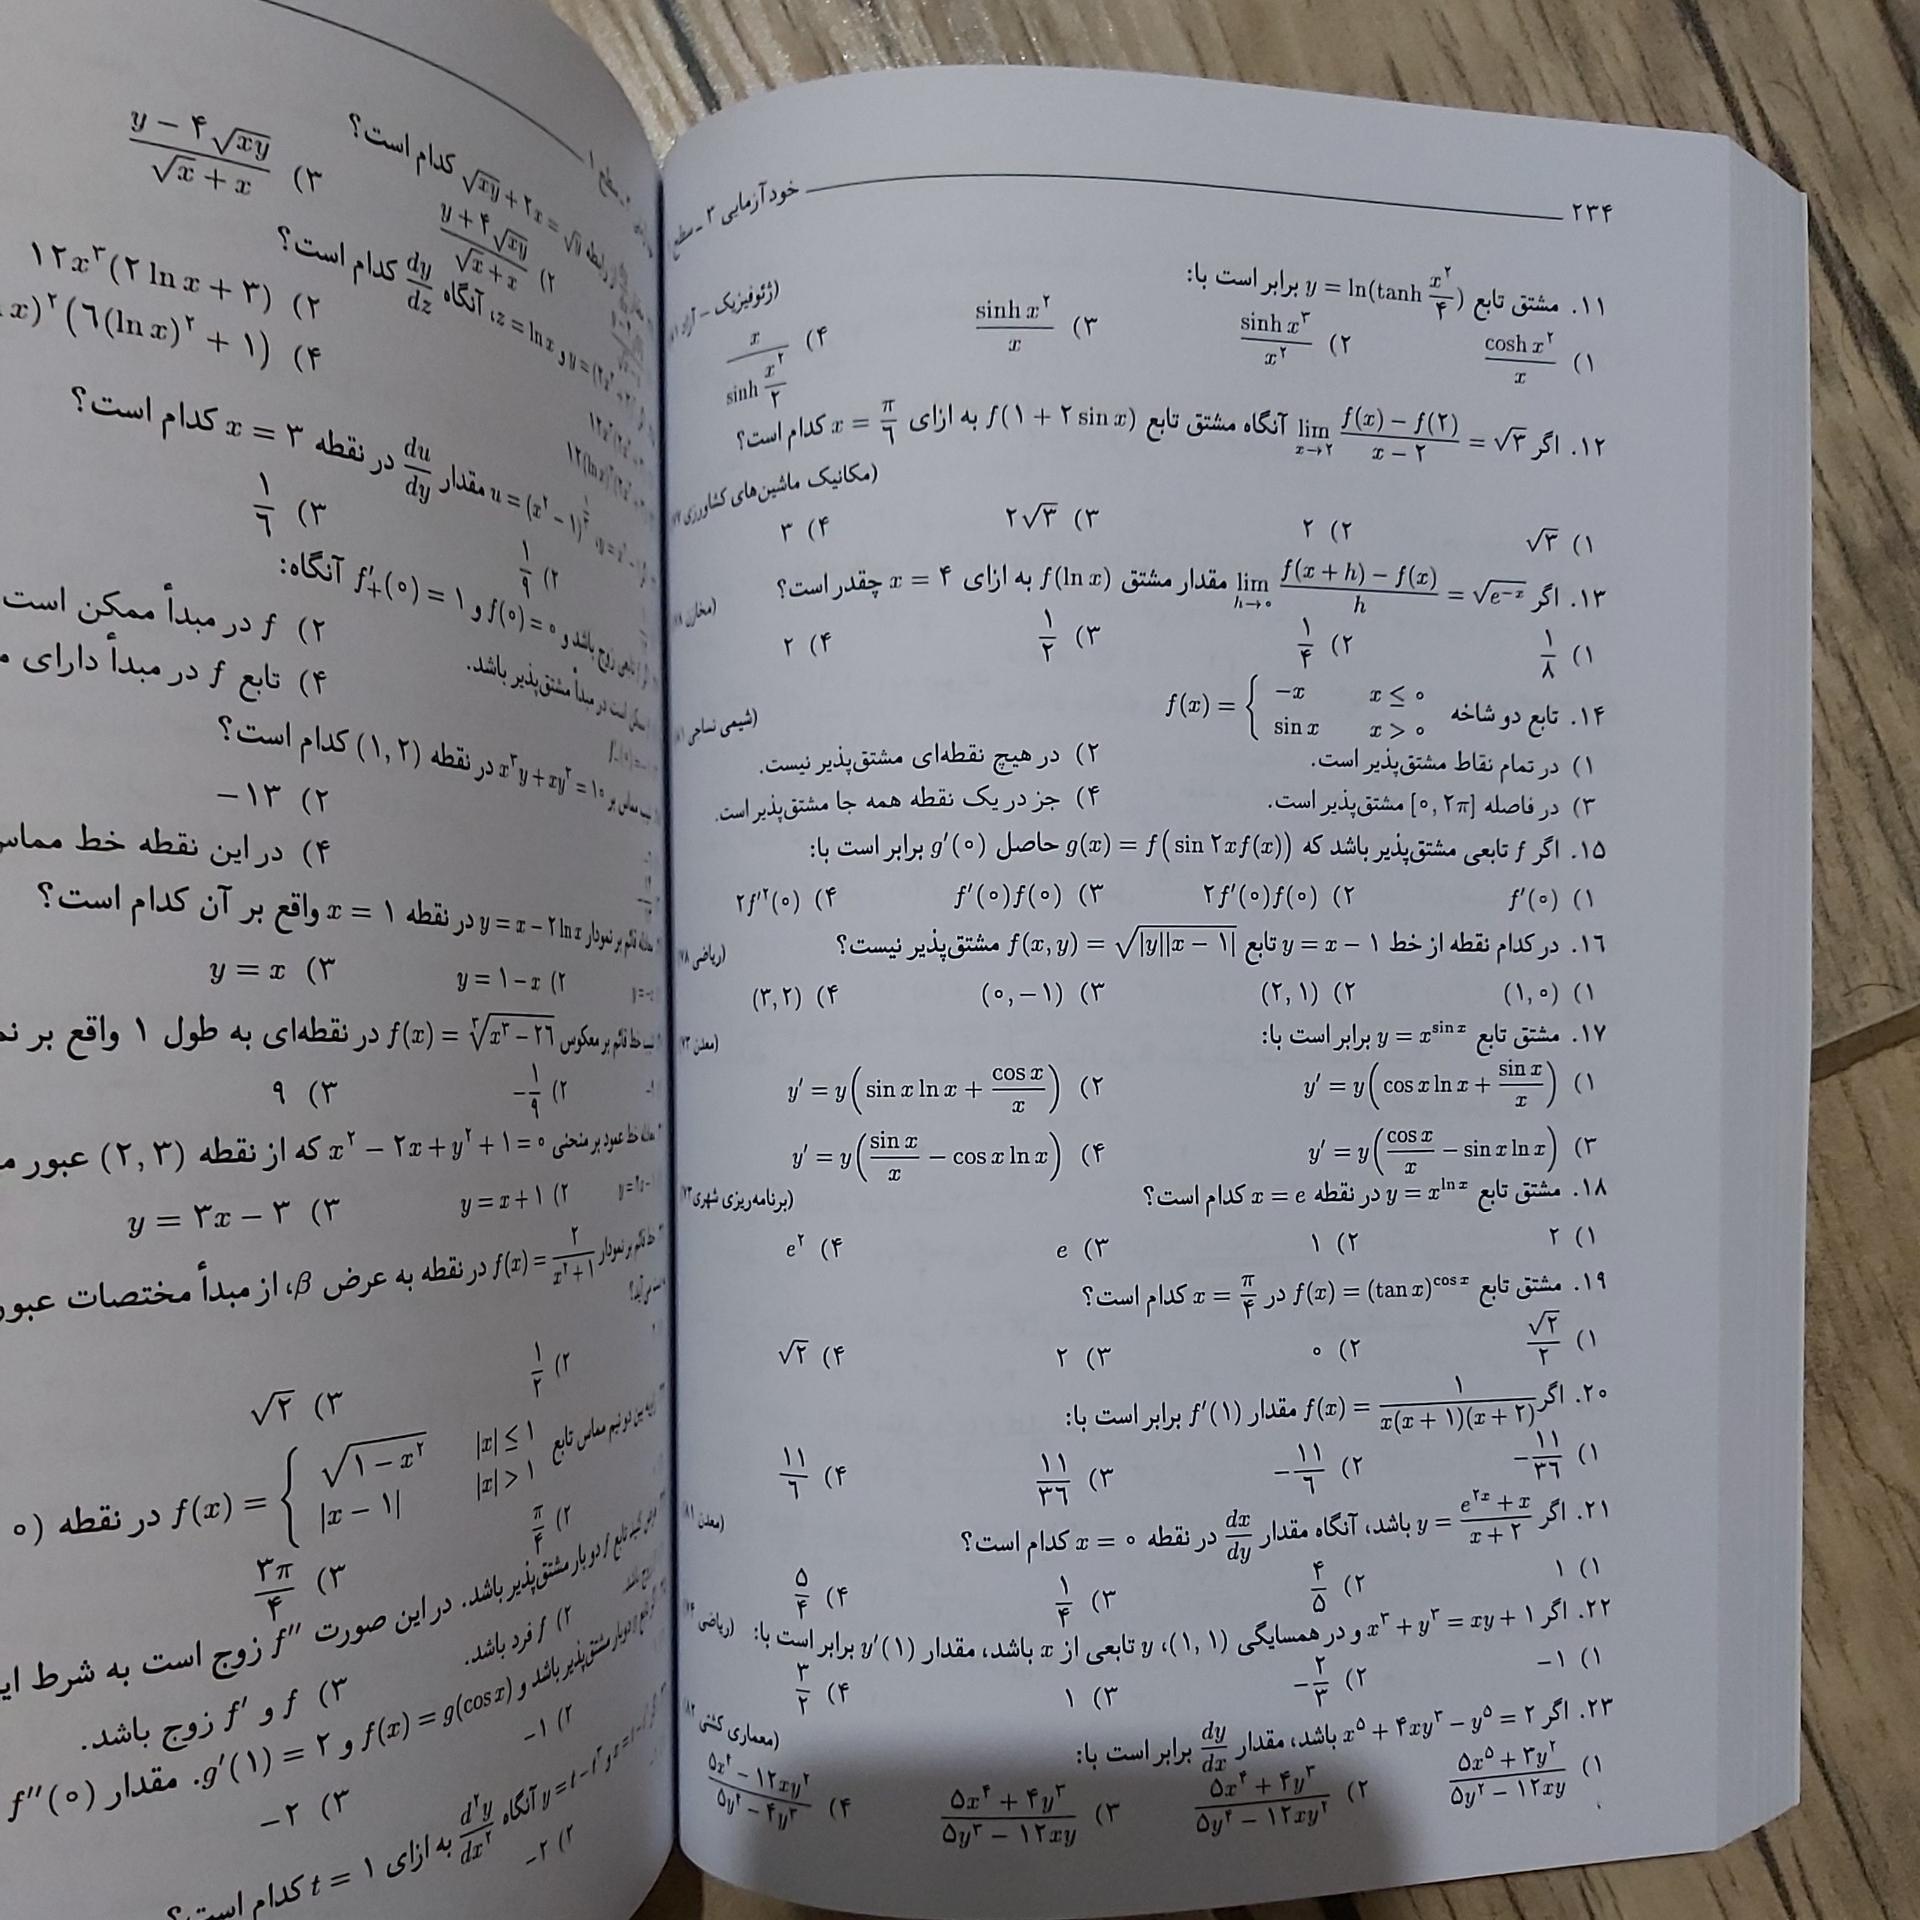 ۲۳۴
خودآزمایی ۳ ـ سطح
۱۱. مشتق تابع y = ln(tanh x²/۴) برابر است با:
(ژئوفیزیک – آزاد
۱) cosh x²/x ۲) sinh x³/x² ۳) sinh x²/x ۴) x/sinh x²/۲
۱۲. اگر lim x→۲ f(x) − f(۲)/x − ۲ = √۳ آنگاه مشتق تابع f(۱ + ۲ sin x) به ازای x = π/۶ کدام است؟
(مکانیک ماشین‌های کشاورزی ۷۷)
۱) √۳ ۲) ۲ ۳) ۲√۳ ۴) ۳
۱۳. اگر lim h→۰ f(x + h) − f(x)/h = √e⁻ˣ مقدار مشتق f(ln x) به ازای x = ۴ چقدر است؟
(مخازن ۷۸)
۱) ۱/۸ ۲) ۱/۴ ۳) ۱/۲ ۴) ۲
۱۴. تابع دو شاخه f(x) = { −x x ≤ ۰
sin x x > ۰
(شیمی نساجی ۸۱)
۱) در تمام نقاط مشتق‌پذیر است. ۲) در هیچ نقطه‌ای مشتق‌پذیر نیست.
۳) در فاصله [۰, ۲π] مشتق‌پذیر است. ۴) جز در یک نقطه همه جا مشتق‌پذیر است.
۱۵. اگر f تابعی مشتق‌پذیر باشد که g(x) = f(sin ۲xf(x)) حاصل g′(۰) برابر است با:
۱) f′(۰) ۲) ۲f′(۰)f(۰) ۳) f′(۰)f(۰) ۴) ۲f′²(۰)
۱۶. در کدام نقطه از خط y = x − ۱ تابع f(x, y) = √|y||x − ۱| مشتق‌پذیر نیست؟
(ریاضی ۷۸)
۱) (۱, ۰) ۲) (۲, ۱) ۳) (۰, −۱) ۴) (۳, ۲)
۱۷. مشتق تابع y = x^sin x برابر است با:
(معدن ۷۳)
۱) y′ = y(cos x ln x + sin x/x) ۲) y′ = y(sin x ln x + cos x/x)
۳) y′ = y(cos x/x − sin x ln x) ۴) y′ = y(sin x/x − cos x ln x)
۱۸. مشتق تابع y = x^ln x در نقطه x = e کدام است؟
(برنامه‌ریزی شهری ۷۳)
۱) ۲ ۲) ۱ ۳) e ۴) e²
۱۹. مشتق تابع f(x) = (tan x)^cos x در x = π/۴ کدام است؟
۱) √۲/۲ ۲) ۰ ۳) ۲ ۴) √۲
۲۰. اگر f(x) = ۱/x(x + ۱)(x + ۲) مقدار f′(۱) برابر است با:
۱) −۱۱/۳۶ ۲) −۱۱/۶ ۳) ۱۱/۳۶ ۴) ۱۱/۶
۲۱. اگر y = e^۲x + x/x + ۲ باشد، آنگاه مقدار dx/dy در نقطه x = ۰ کدام است؟
(معدن ۸۱)
۱) ۱ ۲) ۴/۵ ۳) ۱/۴ ۴) ۵/۴
۲۲. اگر x³ + y³ = xy + ۱ و در همسایگی (۱, ۱)، y تابعی از x باشد، مقدار y′(۱) برابر است با:
(ریاضی
۱) −۱ ۲) −۲/۳ ۳) ۱ ۴) ۳/۲
۲۳. اگر x⁵ + ۴xy³ − y⁵ = ۲ باشد، مقدار dy/dx برابر است با:
(معماری کشتی ۸۲)
۱) ۵x⁵ + ۳y²/۵y² − ۱۲xy ۲) ۵x⁴ + ۴y³/۵y⁴ − ۱۲xy² ۳) ۵x⁴ + ۴y³/۵y³ − ۱۲xy ۴) ۵x⁴ − ۱۲xy²/۵y⁴ − ۴y³
رابطه √xy + ۲x = √y کدام است؟
۲) y + ۴√xy/√x + x ۳) y − ۴√xy/√x + x
و z = ln x، آنگاه dy/dz کدام است؟
۲) ۱۲x³(۲ ln x + ۳)
۴) x)²(۶(ln x)² + ۱)
u = (x² − ۱) مقدار du/dy در نقطه x = ۳ کدام است؟
۲) ۱/۹ ۳) ۱/۶
زوج باشد و f(۰) = ۰ و f′₊(۰) = ۱ آنگاه:
۲) f در مبدأ ممکن است
ممکن است در مبدأ مشتق‌پذیر باشد.
۴) تابع f در مبدأ دارای
x³y + xy³ = ۱۰ در نقطه (۱, ۲) کدام است؟
۲) −۱۳
۴) در این نقطه خط مماس
قائم بر نمودار y = x − ۲ ln x در نقطه x = ۱ واقع بر آن کدام است؟
۲) y = ۱ − x ۳) y = x
خط قائم بر معکوس f(x) = ³√x³ − ۲۶ در نقطه‌ای به طول ۱ واقع بر
۲) −۱/۹ ۳) ۹
خط عمود بر منحنی x² − ۲x + y² + ۱ = ۰ که از نقطه (۲, ۳) عبور
۲) y = x + ۱ ۳) y = ۳x − ۳
خط قائم بر نمودار f(x) = ۲/x² + ۱ در نقطه به عرض β، از مبدأ مختصات عبور
۲) ۱/۲ ۳) √۲
بین دو نیم مماس تابع f(x) = { √۱ − x² |x| ≤ ۱
|x − ۱| |x| > ۱ در نقطه (۰
۲) π/۴ ۳) ۳π/۴
تابع f دو بار مشتق‌پذیر باشد. در این صورت f″ زوج است به شرط
۲) f فرد باشد. ۳) f و f′ زوج باشد.
دو بار مشتق‌پذیر باشد و f(x) = g(cos x) و g′(۱) = ۲. مقدار f″(۰)
۲) −۱ ۳) −۲
آنگاه d²y/dx² به ازای t = ۱ کدام است؟
۲) −۲